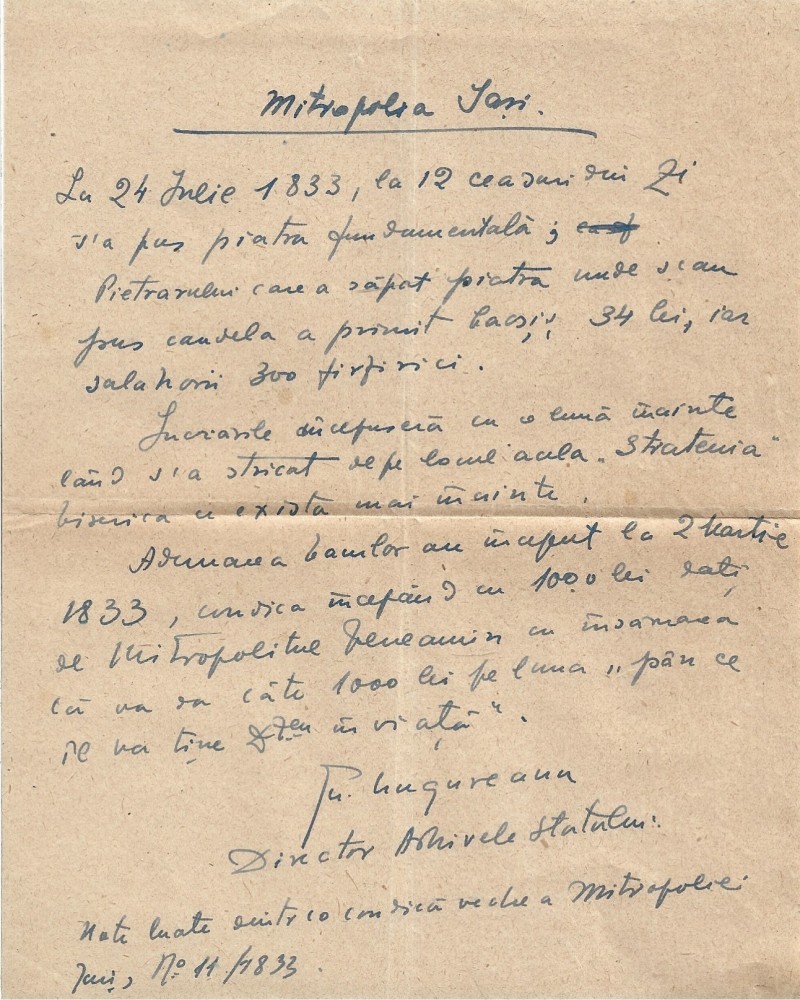 Mitropolia Iași.
La 24 Iulie 1833, la 12 ceasuri din zi
s'a pus piatra fundamentală;
Pietrarului care a săpat piatra unde s'au
pus candela a primit bacșiș 34 lei, iar
salahorii 300 firfirici.
Lucrările începuseră cu o lună înainte
când s'a stricat depe locul acela „Stratenia"
biserica ce exista mai înainte.
Adunarea banilor au început la 2 Martie
1833, condica începând cu 1000 lei dați
de Mitropolitul Veneamin cu însemnarea
că va da câte 1000 lei pe luna „păn ce
îl va ține Dzeu în viață".
Gh. Ungureanu
Director Arhivele Statului.
Note luate dintr'o condică veche a Mitropoliei
Iași, No 11/1833.